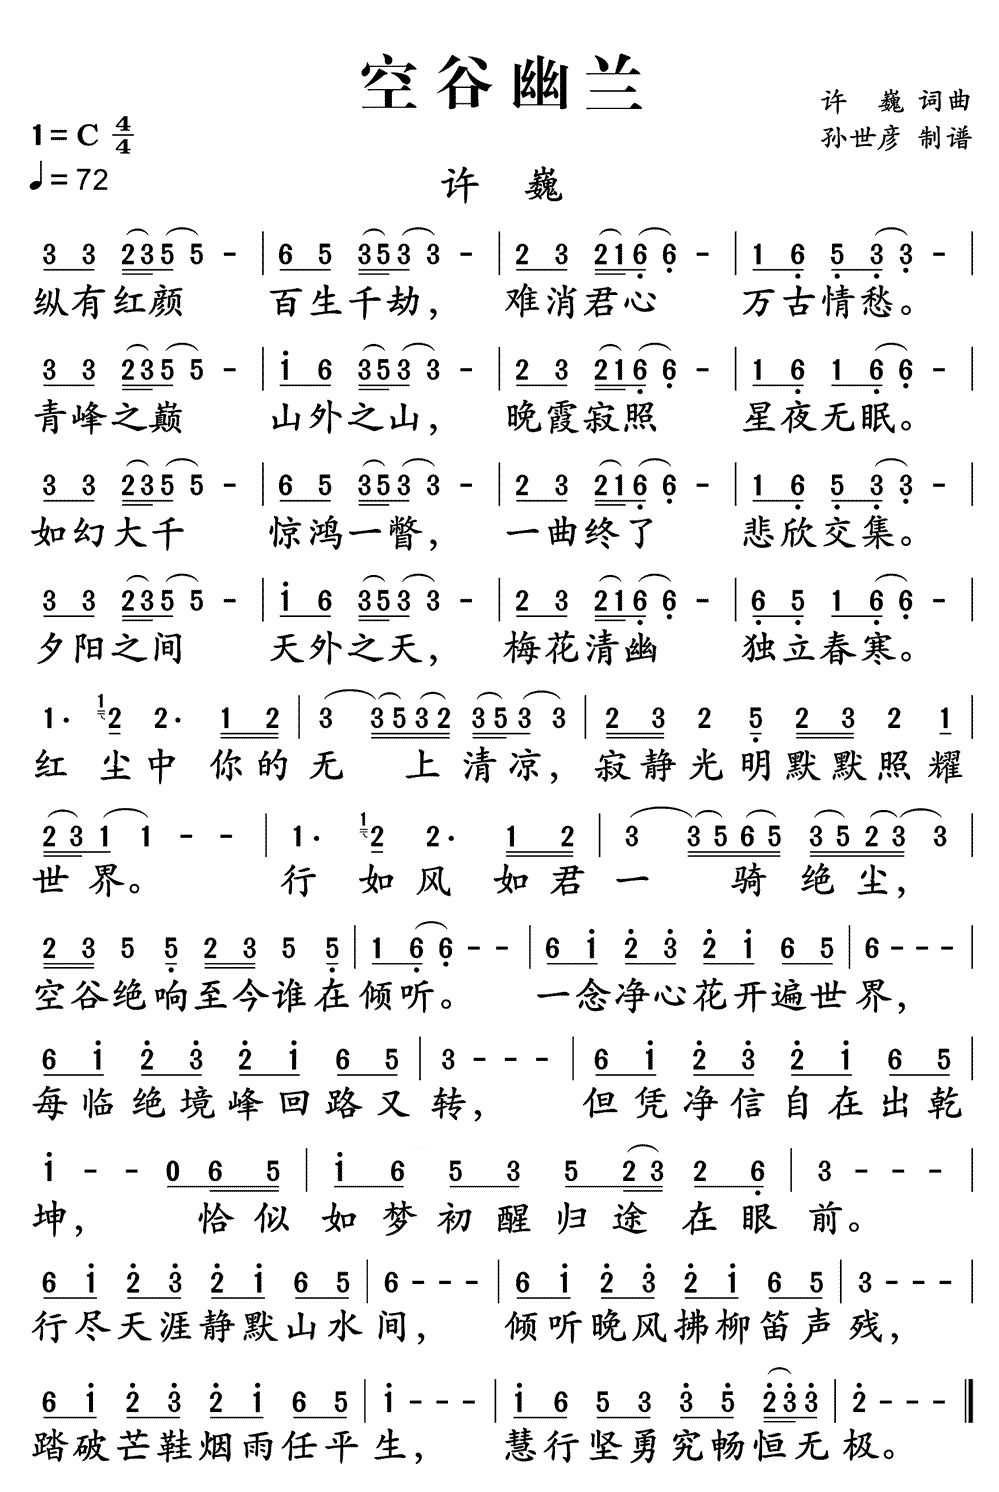 空谷幽兰
许 巍 词曲
1=C 4/4
孙世彦 制谱
♩=72
许 巍
3 3 2 3 5 5 - | 6 5 3 5 3 3 - | 2 3 2 1 6 6 - | 1 6 5 3 3 - |
纵有红颜 百生千劫, 难消君心 万古情愁。
3 3 2 3 5 5 - | 1 6 3 5 3 3 - | 2 3 2 1 6 6 - | 1 6 1 6 6 - |
青峰之巅 山外之山, 晚霞寂照 星夜无眠。
3 3 2 3 5 5 - | 6 5 3 5 3 3 - | 2 3 2 1 6 6 - | 1 6 5 3 3 - |
如幻大千 惊鸿一瞥, 一曲终了 悲欣交集。
3 3 2 3 5 5 - | 1 6 3 5 3 3 - | 2 3 2 1 6 6 - | 6 5 1 6 6 - |
夕阳之间 天外之天, 梅花清幽 独立春寒。
1· 1 2 2· 1 2 | 3 3 5 3 2 3 5 3 3 | 2 3 2 5 2 3 2 1 |
红尘中你的无 上清凉, 寂静光明默默照耀
2 3 1 1 - - | 1· 1 2 2· 1 2 | 3 3 5 6 5 3 5 2 3 3 |
世界。 行如风如君一 骑绝尘,
2 3 5 5 2 3 5 5 | 1 6 6 - - | 6 1 2 3 2 1 6 5 | 6 - - - |
空谷绝响至今谁在倾听。 一念净心花开遍世界,
6 1 2 3 2 1 6 5 | 3 - - - | 6 1 2 3 2 1 6 5 |
每临绝境峰回路又转, 但凭净信自在出乾
1 - - 0 6 5 | 1 6 5 3 5 2 3 2 6 | 3 - - - |
坤, 恰似如梦初醒归途在眼前。
6 1 2 3 2 1 6 5 | 6 - - - | 6 1 2 3 2 1 6 5 | 3 - - - |
行尽天涯静默山水间, 倾听晚风拂柳笛声残,
6 1 2 3 2 1 6 5 | 1 - - - | 1 6 5 3 3 5 2 3 3 | 2 - - - ‖
踏破芒鞋烟雨任平生, 慧行坚勇究畅恒无极。